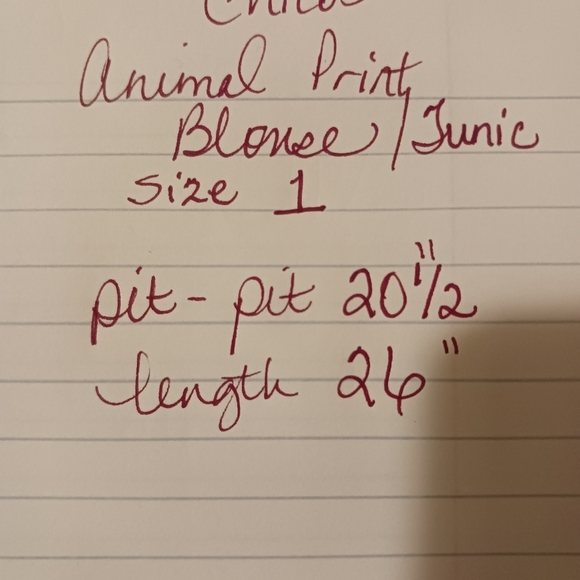 Animal Print
Blouse/Tunic
Size 1
pit-pit 20 1/2"
length 26"